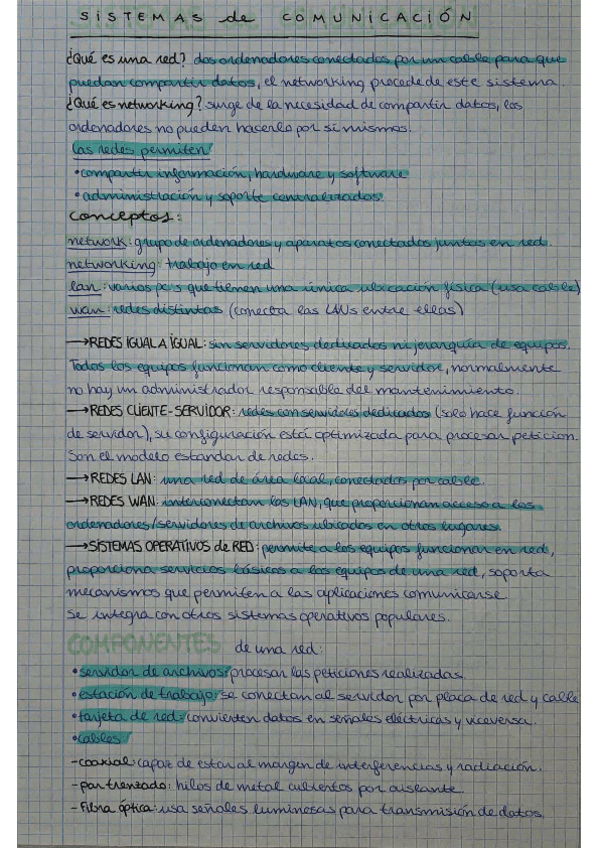 SISTEMAS de COMUNICACIÓN
¿Qué es una red? dos ordenadores conectados por un cable para que
puedan compartir datos, el networking procede de este sistema.
¿Qué es networking? surge de la necesidad de compartir datos, los
ordenadores no pueden hacerlo por si mismos.
Las redes permiten
•compartir información, hardware y software
•administración y soporte centralizados
conceptos:
network: grupo de ordenadores y aparatos conectados juntos en red.
networking: trabajo en red
lan: varios pc's que tienen una única ubicación física (usa cable)
wan: redes distintas (conecta las LANs entre ellas)
→REDES IGUAL A IGUAL: sin servidores dedicados ni jerarquía de equipos.
Todos los equipos funcionan como cliente y servidor, normalmente
no hay un administrador responsable del mantenimiento.
→REDES CLIENTE-SERVIDOR: redes con servidores dedicados (solo hace función
de servidor), su configuración está optimizada para procesar peticion.
Son el modelo estandar de redes.
→REDES LAN: una red de área local, conectados por cable.
→REDES WAN: interconectan las LAN, que proporcionan acceso a los
ordenadores/servidores de archivos ubicados en otros lugares.
→SISTEMAS OPERATIVOS de RED: permite a los equipos funcionar en red,
proporciona servicios básicos a los equipos de una red, soporta
mecanismos que permiten a las aplicaciones comunicarse
se integra con otros sistemas operativos populares.
COMPONENTES de una red:
•servidor de archivos: procesar las peticiones realizadas
•estación de trabajo: se conectan al servidor por placa de red y cable
•tarjeta de red: convierten datos en señales eléctricas y viceversa.
•cables
-coaxial: capaz de estar al margen de interferencias y radiación.
-par trenzado: hilos de metal cubiertos por aislante
-Fibra óptica: usa señales luminosas para transmisión de datos.